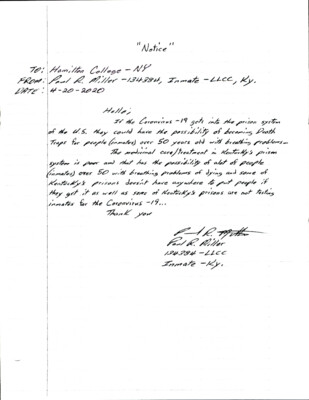 "Notice"
TO: Hamilton College - NY
FROM: Paul R. Miller - 134384, Inmate - LLCC, Ky.
DATE: 4-20-2020
Hello;
If the Coronvirus -19 gets into the prison system
of the U.S. they could have the possibility of becoming Death
Traps for people (inmates) over 50 years old with breathing problems--
The medicinal care/treatment in Kentucky's prison
system is poor and that has the possibility of alot of people
(inmates) over 50 with breathing problems of dying and some of
Kentucky's prisons doesn't have anywhere to put people if
they get it as well as some of Kentucky's prisons are not testing
inmates for the Coronvirus -19...
Thank you
Paul R. Miller
134384 - LLCC
Inmate - Ky.